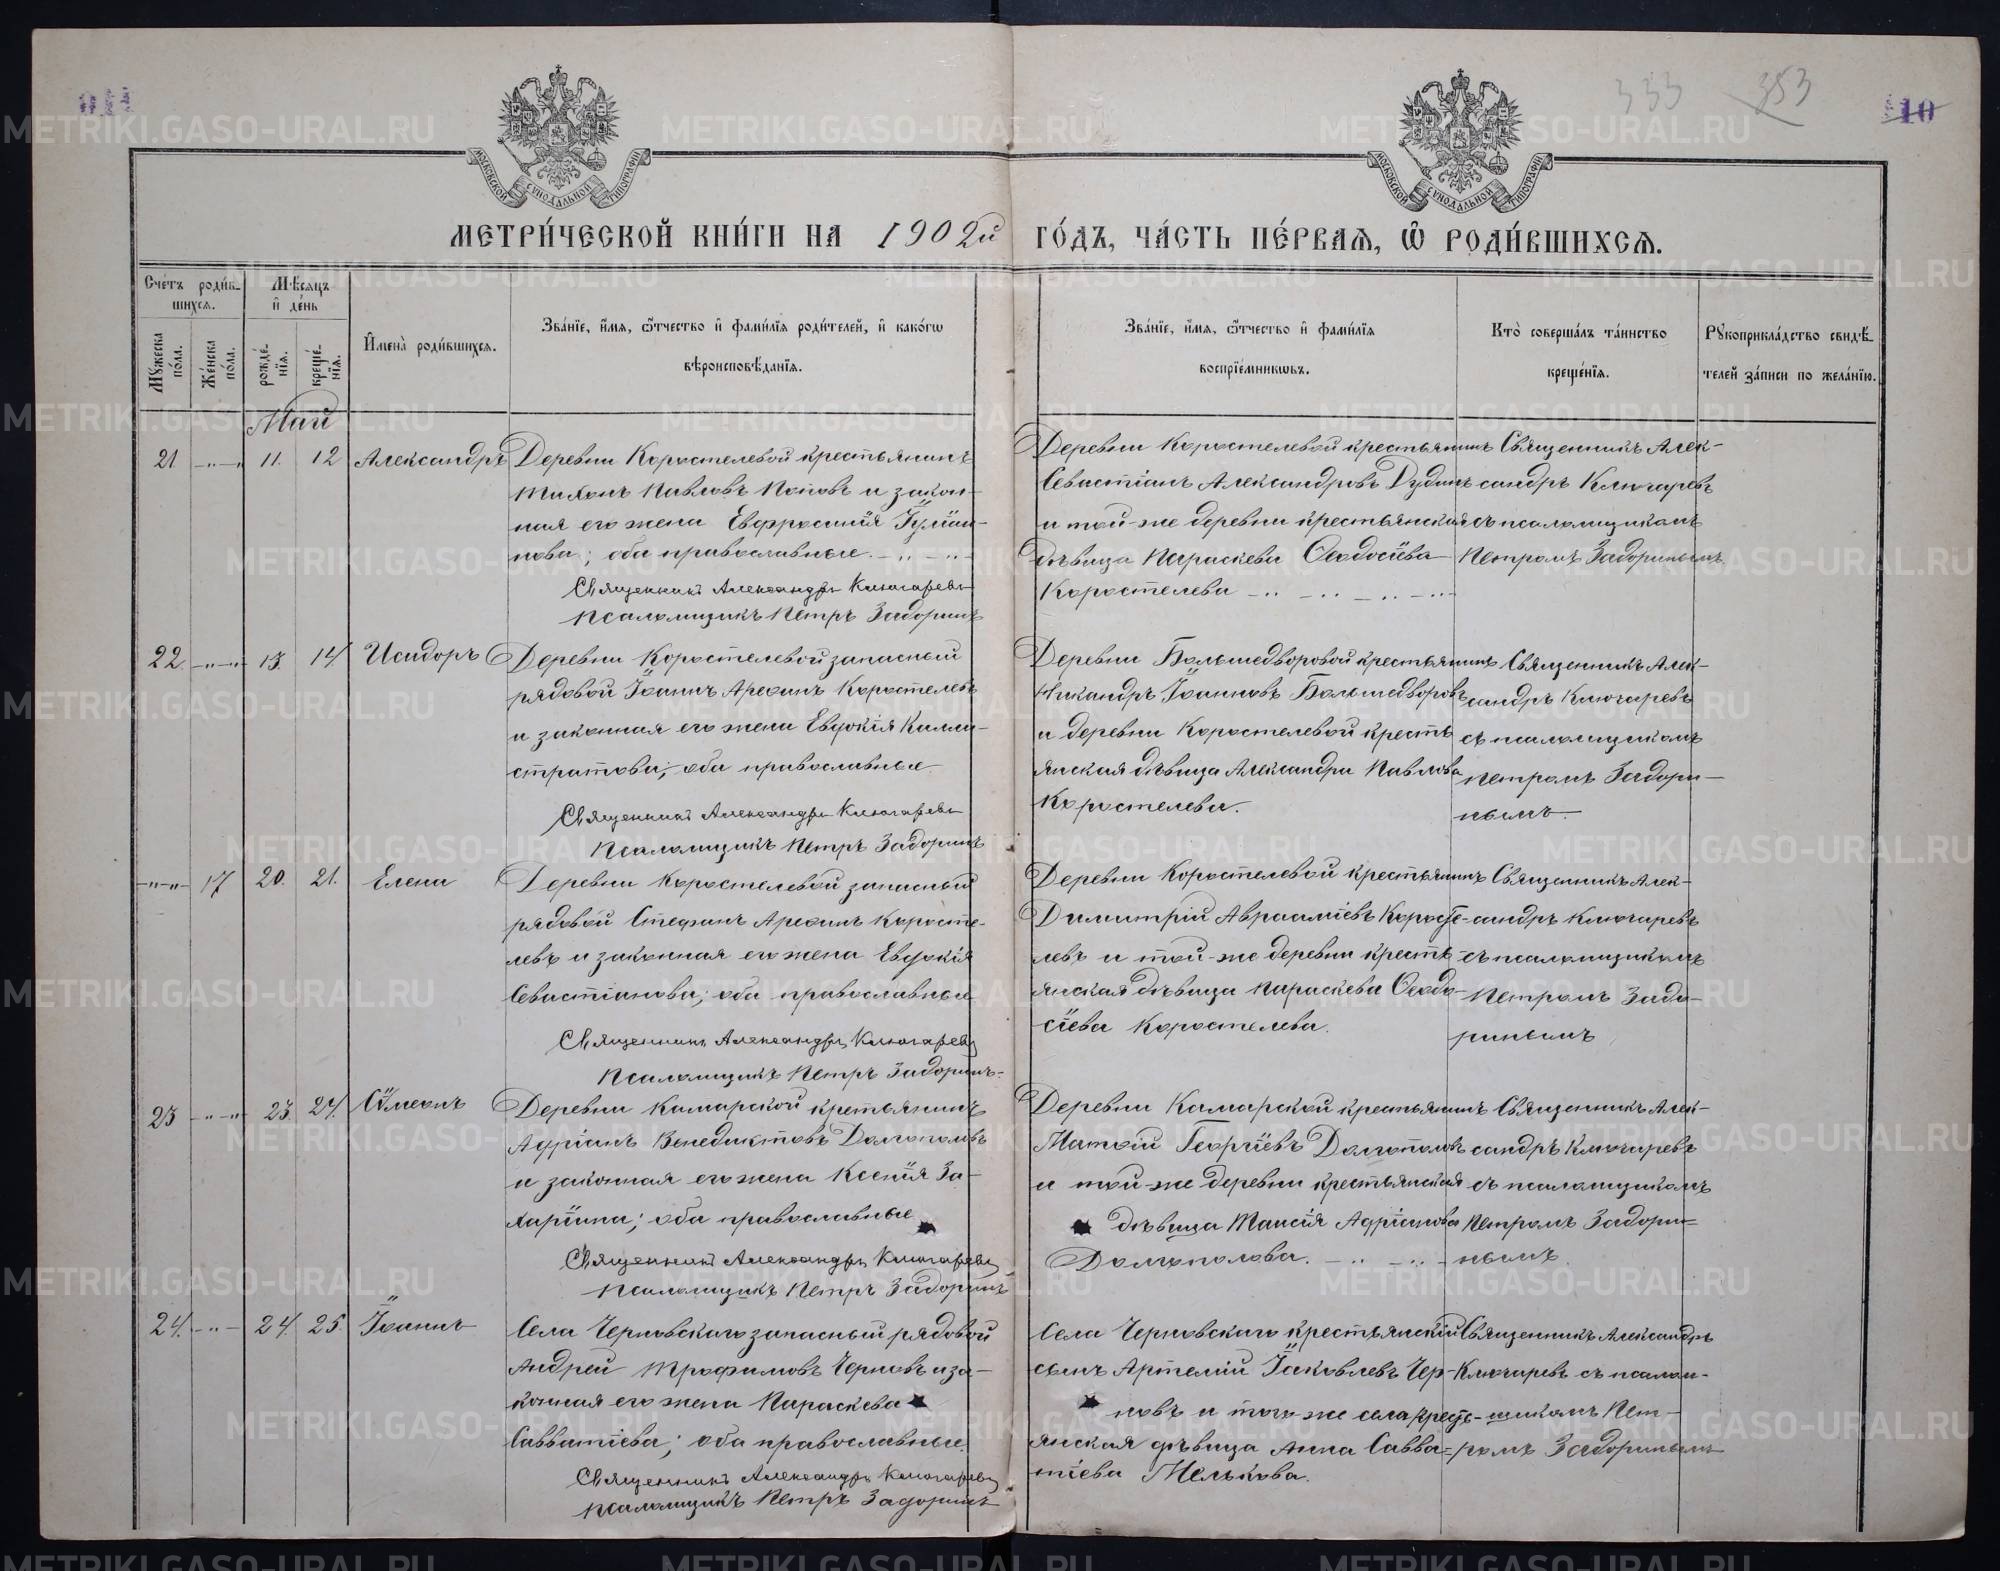 333 353 10
МОСКОВСКОЙ СѴНОДАЛЬНОЙ ТИПОГРАФІИ
МОСКОВСКОЙ СѴНОДАЛЬНОЙ ТИПОГРАФІИ
МЕТРИ́ЧЕСКОЙ КНИ́ГИ НА 1902й ГО́ДЪ, ЧА́СТЬ ПЕ́РВАЯ, Ѡ РОДИ́ВШИХСЯ.
Сче́тъ роди́в-
шихся.
Мꙋжеска по́ла.
Же́нска по́ла.
Мѣ́сяцъ
и҆ де́нь
рожде́нїя.
креще́нїя.
И҆мена̀ роди́вшихся.
Зва́нїе, и҆́мя, ѻ҆́тчество и҆ фами́лїя роди́телей, и҆ како́гѡ
вѣроисповѣ́данїя.
Зва́нїе, и҆́мя, ѻ҆́тчество и҆ фами́лїя
воспрїе́мникѡвъ.
Кто̀ соверша́лъ та́инство
креще́нїя.
Рꙋкоприкла́дство свидѣ́-
телей за́писи по жела́нїю.
Май
21 -"-"- 11. 12 Александръ
Деревни Коростелевой крестьянинъ
Тихонъ Павловъ Поповъ и закон-
ная его жена Евфросинія Іуліан-
нова; оба православные.
Священникъ Александръ Ключаревъ
Псаломщикъ Петръ Задоринъ
Деревни Коростелевой крестьянинъ
Севастіанъ Александровъ Дудинъ
и той-же деревни крестьянская
дѣвица Параскева Ѳеодосіева
Коростелева
Священникъ Алек-
сандръ Ключаревъ
съ псаломщикомъ
Петромъ Задоринымъ
22. -"-"- 13. 14. Исидоръ
Деревни Коростелевой запасный
рядовой Іоаннъ Арефинъ Коростелевъ
и законная его жена Евдокія Калли-
стратова; оба православные
Священникъ Александръ Ключаревъ
Псаломщикъ Петръ Задоринъ
Деревни Большедворовой крестьянинъ
Никандръ Іоанновъ Большедворовъ
и деревни Коростелевой кресть
янская дѣвица Александра Павлова
Коростелева.
Священникъ Алек-
сандръ Ключаревъ
съ псаломщикомъ
Петромъ Задори-
нымъ.
-"-"- 17 20. 21. Елена
Деревни Коростелевой запасный
рядовой Стефанъ Арефинъ Коросте-
левъ и законная его жена Евдокія
Севастіанова; оба православные
Священникъ Александръ Ключаревъ
Псаломщикъ Петръ Задоринъ.
Деревни Коростелевой крестьянинъ
Димитрій Авраамiевъ Коросте-
левъ и той-же деревни кресть
янская дѣвица Параскева Ѳеодо-
сіева Коростелева.
Священникъ Алек-
сандръ Ключаревъ
съ псаломщикомъ
Петромъ Задо-
ринымъ
23 -"-"- 23. 24. Сѵмеонъ
Деревни Камарской крестьянинъ
Адріанъ Венедиктовъ Долгополовъ
и законная его жена Ксенія За-
харіина; оба православные
Священникъ Александръ Ключаревъ
Псаломщикъ Петръ Задоринъ
Деревни Камарской крестьянинъ
Матѳій Георгіевъ Долгополовъ
и той-же деревни крестьянская
дѣвица Таисія Адріанова
Долгополова.
Священникъ Алек-
сандръ Ключаревъ
съ псаломщикомъ
Петромъ Задори-
нымъ
24. -"- 24. 25 Іоаннъ
Села Черновскаго запасный рядовой
Андрей Трофимовъ Черновъ и за-
конная его жена Параскева
Савватіева; оба православные.
Священникъ Александръ Ключаревъ
Псаломщикъ Петръ Задоринъ
Села Черновскаго крестьянскій
сынъ Артемій Іаковлевъ Чер-
новъ и того же села кресть-
янская дѣвица Анна Савва-
тіева Мелькова.
Священникъ Александръ
Ключаревъ съ псалом-
щикомъ Пет-
ромъ Задоринымъ
METRIKI.GASO-URAL.RU